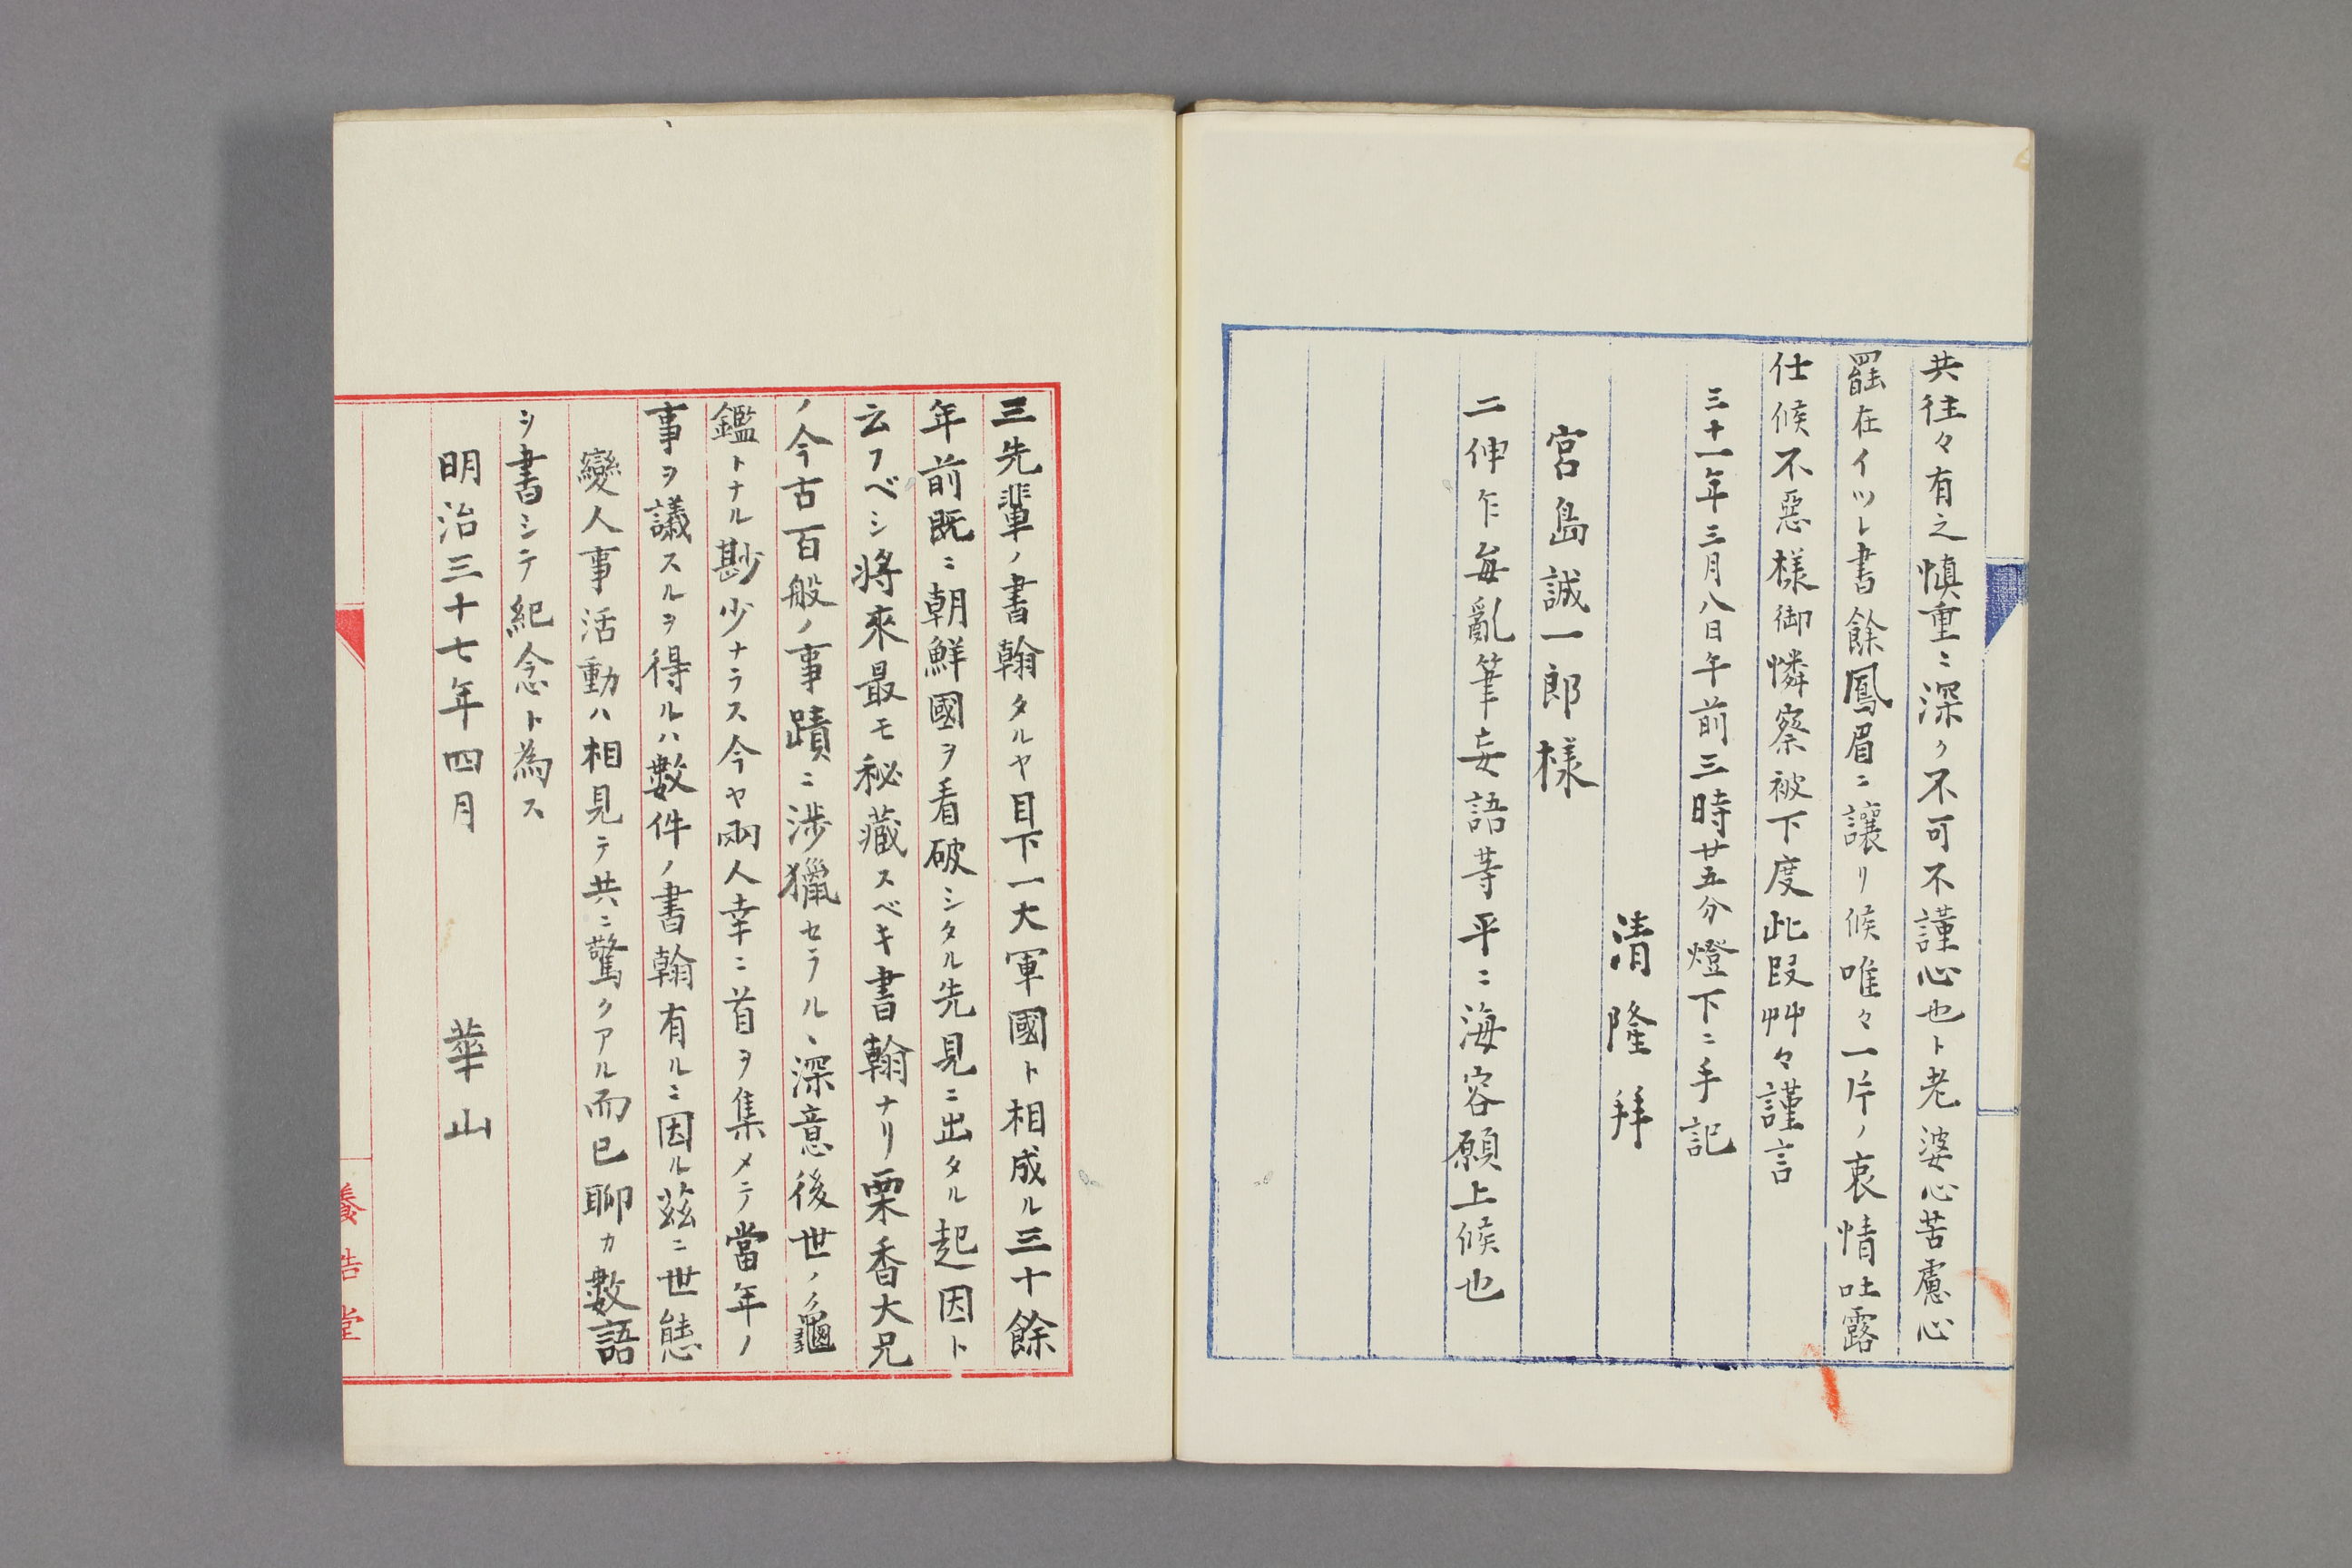 共往々有之慎重ニ深ク不可不謹心也ト老婆心苦慮心
罷在イツレ書餘鳳眉ニ讓リ候唯々一片ノ衷情吐露
仕候不惡樣御憐察被下度此段艸々謹言
三十一年三月八日午前三時廿五分燈下ニ手記
清隆拜
宮島誠一郎樣
二伸乍每亂筆妄語等平ニ海容願上候也
三先輩ノ書翰タルヤ目下一大軍國ト相成ル三十餘
年前既ニ朝鮮國ヲ看破シタル先見ニ出タル起因ト
云フベシ將來最モ秘藏スベキ書翰ナリ栗香大兄
ノ今古百般ノ事蹟ニ渉獵セラルヽ深意後世ノ龜
鑑トナル尠少ナラス今ヤ兩人幸ニ首ヲ集メテ當年ノ
事ヲ議スルヲ得ルハ數件ノ書翰有ルニ因ル茲ニ世態
變人事活動ハ相見テ共ニ驚クアル而已聊カ數語
ヲ書シテ紀念ト為ス
明治三十七年四月 華山
養浩堂